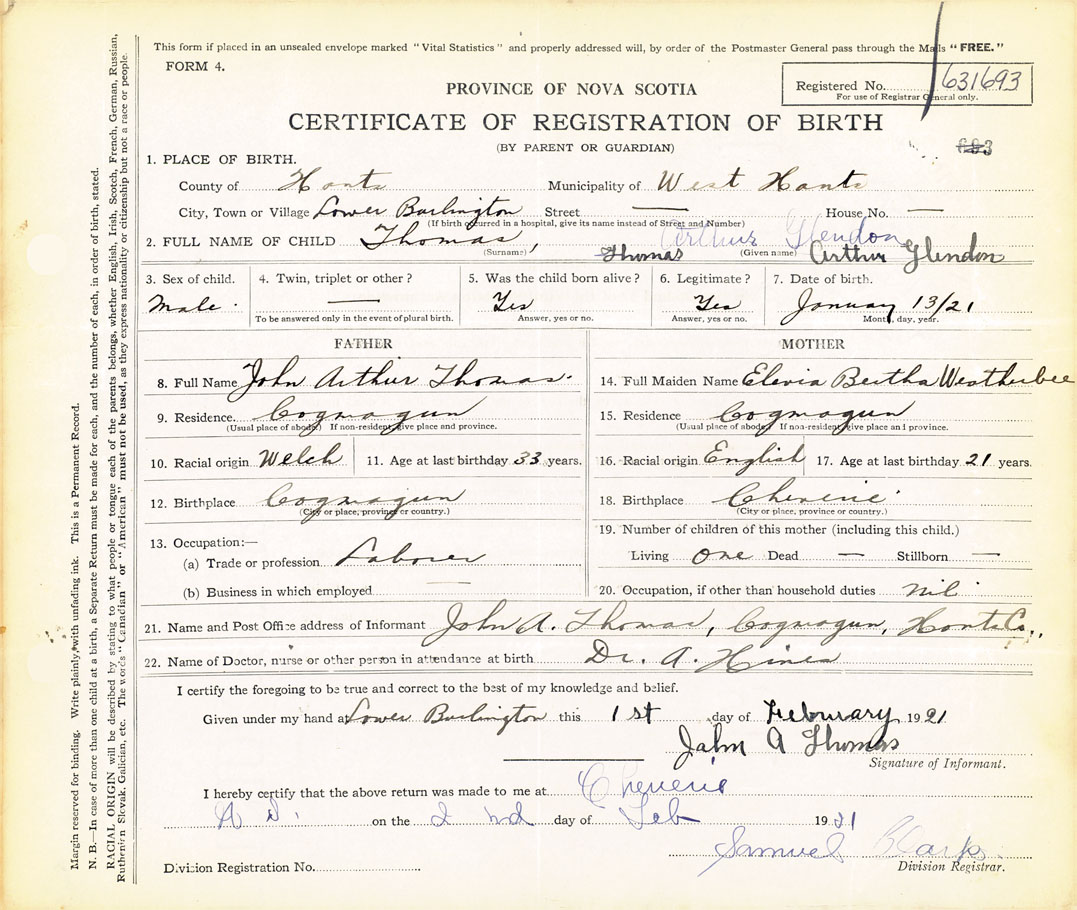 This form if placed in an unsealed envelope marked "Vital Statistics" and properly addressed will, by order of the Postmaster General pass through the Mails "FREE."
FORM 4.
Registered No. 631693
For use of Registrar General only.
PROVINCE OF NOVA SCOTIA
CERTIFICATE OF REGISTRATION OF BIRTH
(BY PARENT OR GUARDIAN)
1. PLACE OF BIRTH.
County of Hants Municipality of West Hants
City, Town or Village Lower Burlington Street — House No. —
(If birth occurred in a hospital, give its name instead of Street and Number)
Arthur Glendon
2. FULL NAME OF CHILD Thomas, Thomas Arthur Glendon
(Surname) (Given name)
3. Sex of child. 4. Twin, triplet or other? 5. Was the child born alive? 6. Legitimate? 7. Date of birth.
Male. — Yes Yes January 13/21
To be answered only in the event of plural birth. Answer, yes or no. Answer, yes or no. Month, day, year.
FATHER
8. Full Name John Arthur Thomas.
9. Residence. Cogmagun
(Usual place of abode) If non-resident, give place and province.
10. Racial origin Welch 11. Age at last birthday 33 years.
12. Birthplace Cogmagun
(City or place, province or country.)
13. Occupation:—
(a) Trade or profession Laborer
(b) Business in which employed —
MOTHER
14. Full Maiden Name Elevia Bertha Weatherbee
15. Residence Cogmagun
(Usual place of abode. If non-resident, give place and province.
16. Racial origin English 17. Age at last birthday 21 years.
18. Birthplace Cheverie
(City or place, province or country.)
19. Number of children of this mother (including this child.)
Living one Dead — Stillborn —
20. Occupation, if other than household duties nil
21. Name and Post Office address of Informant John A. Thomas, Cogmagun, Hants Co.,
22. Name of Doctor, nurse or other person in attendance at birth Dr. A. Hines
I certify the foregoing to be true and correct to the best of my knowledge and belief.
Given under my hand at Lower Burlington this 1st day of Feburary 1921
John A Thomas
Signature of Informant.
I hereby certify that the above return was made to me at Cheverie
N S. on the 2nd day of Feb 1921
Samuel
Division Registration No. Division Registrar.
Margin reserved for binding. Write plainly, with unfading ink. This is a Permanent Record.
N. B.—In case of more than one child at a birth, a Separate Return must be made for each, and the number of each, in order of birth, stated.
RACIAL ORIGIN will be described by stating to what people or tongue each of the parents belongs, whether English, Irish, Scotch, French, German, Russian,
Ruthenian, Slovak, Galician, etc. The words "Canadian" or "American" must not be used, as they express nationality or citizenship but not a race or people